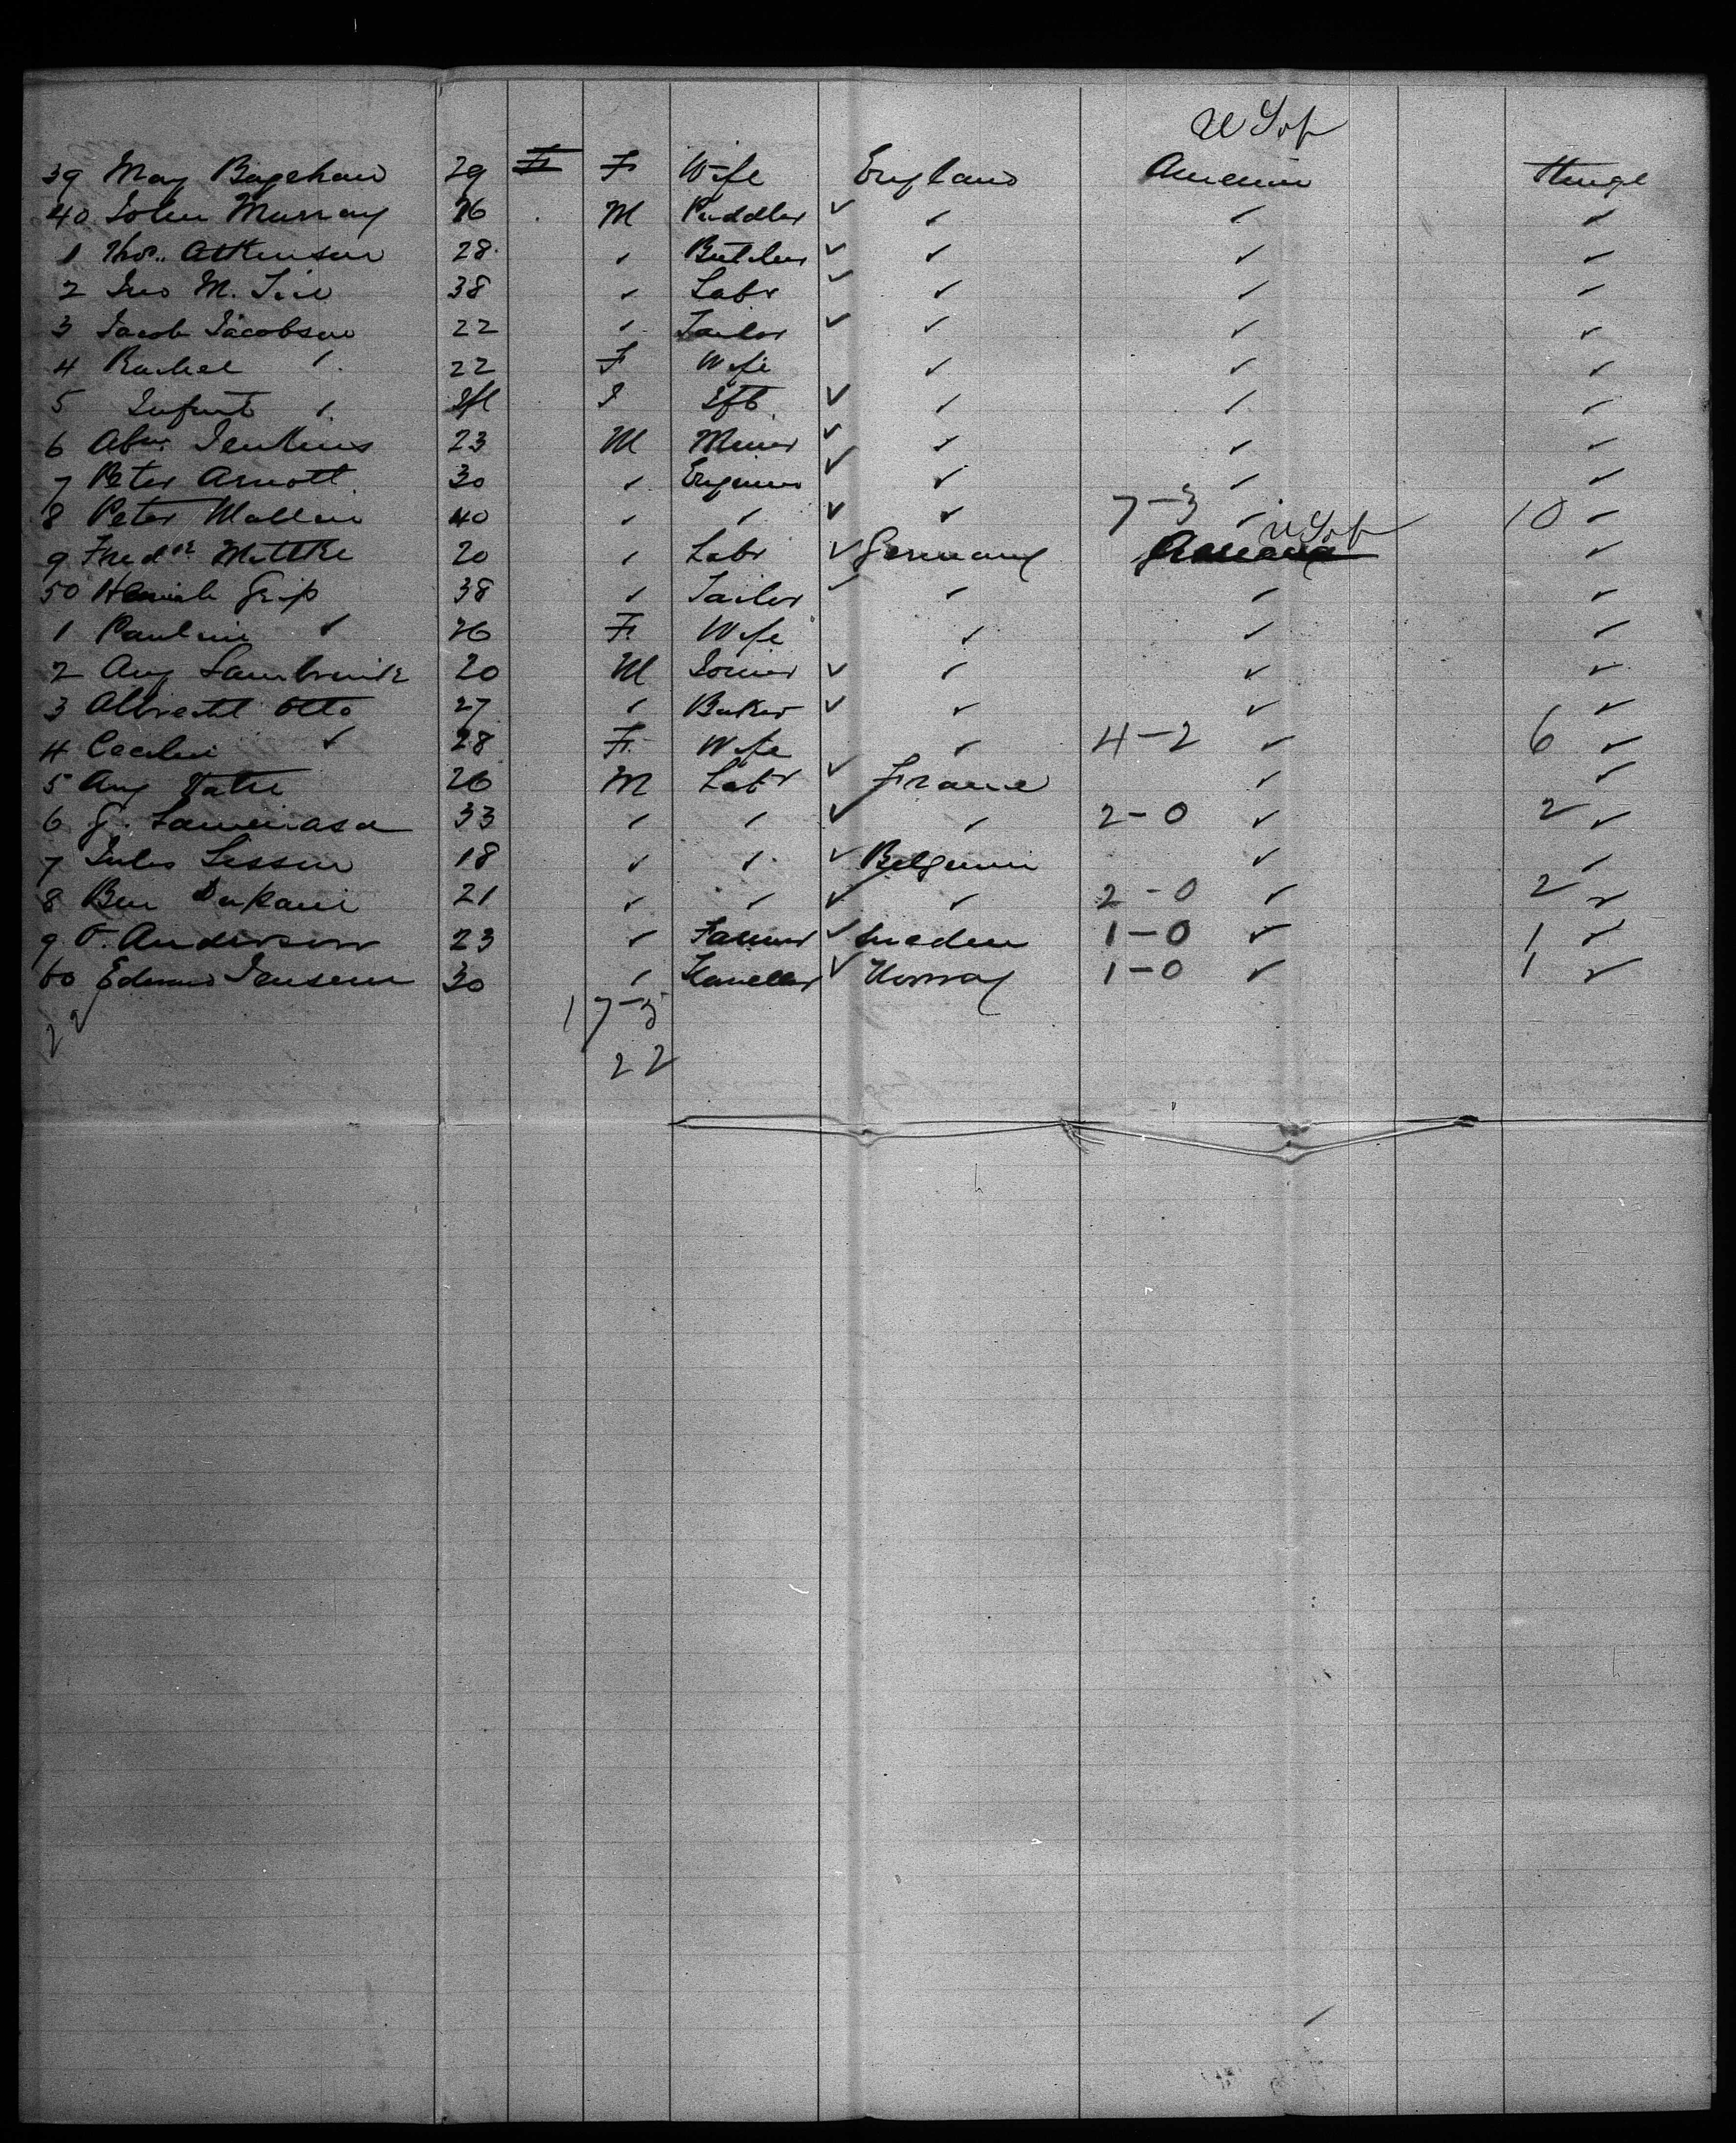 U S of
39 May Bagshaw 29 F F Wife England America
40 John Murray 26 M Puddler ✓ ✓ ✓ ✓
1 Thos. Atkinson 28 ✓ Butcher ✓ ✓ ✓ ✓
2 Jno M. 38 ✓ Labr ✓ ✓ ✓ ✓
3 Jacob Jacobson 22 ✓ Tailor ✓ ✓ ✓ ✓
4 Rachel ✓ 22 F Wife ✓ ✓ ✓
5 Infant ✓ Ift I Ift ✓ ✓ ✓ ✓
6 Abm. Jenkins 23 M Miner ✓ ✓ ✓ ✓
7 Peter Arnott 30 ✓ Engineer ✓ ✓ ✓ ✓
8 Peter Mallen 40 ✓ ✓ ✓ ✓ 7-3 ✓ 10 ✓
U S of
9 Fredk Mittke 20 ✓ Labr ✓ Germany America ✓
50 Grip 38 ✓ Tailor ✓ ✓ ✓ ✓
1 Pauline ✓ 26 F Wife ✓ ✓ ✓
2 Aug 20 M Joiner ✓ ✓ ✓ ✓
3 Albrecht Otto 27 ✓ Baker ✓ ✓ ✓ ✓
4 Cecilie ✓ 28 F Wife ✓ 4-2 ✓ 6 ✓
5 Aug 26 M Labr ✓ France ✓ ✓
6 G. 33 ✓ ✓ ✓ ✓ 2-0 ✓ 2 ✓
7 Jules 18 ✓ ✓ ✓ Belgium ✓ ✓
8 Ben 21 ✓ ✓ ✓ ✓ 2-0 ✓ 2 ✓
9 O. Anderson 23 ✓ Farmer ✓ Sweden 1-0 ✓ 1 ✓
60 Edward Jensen 30 ✓ ✓ Norway 1-0 ✓ 1 ✓
22 17-5
22